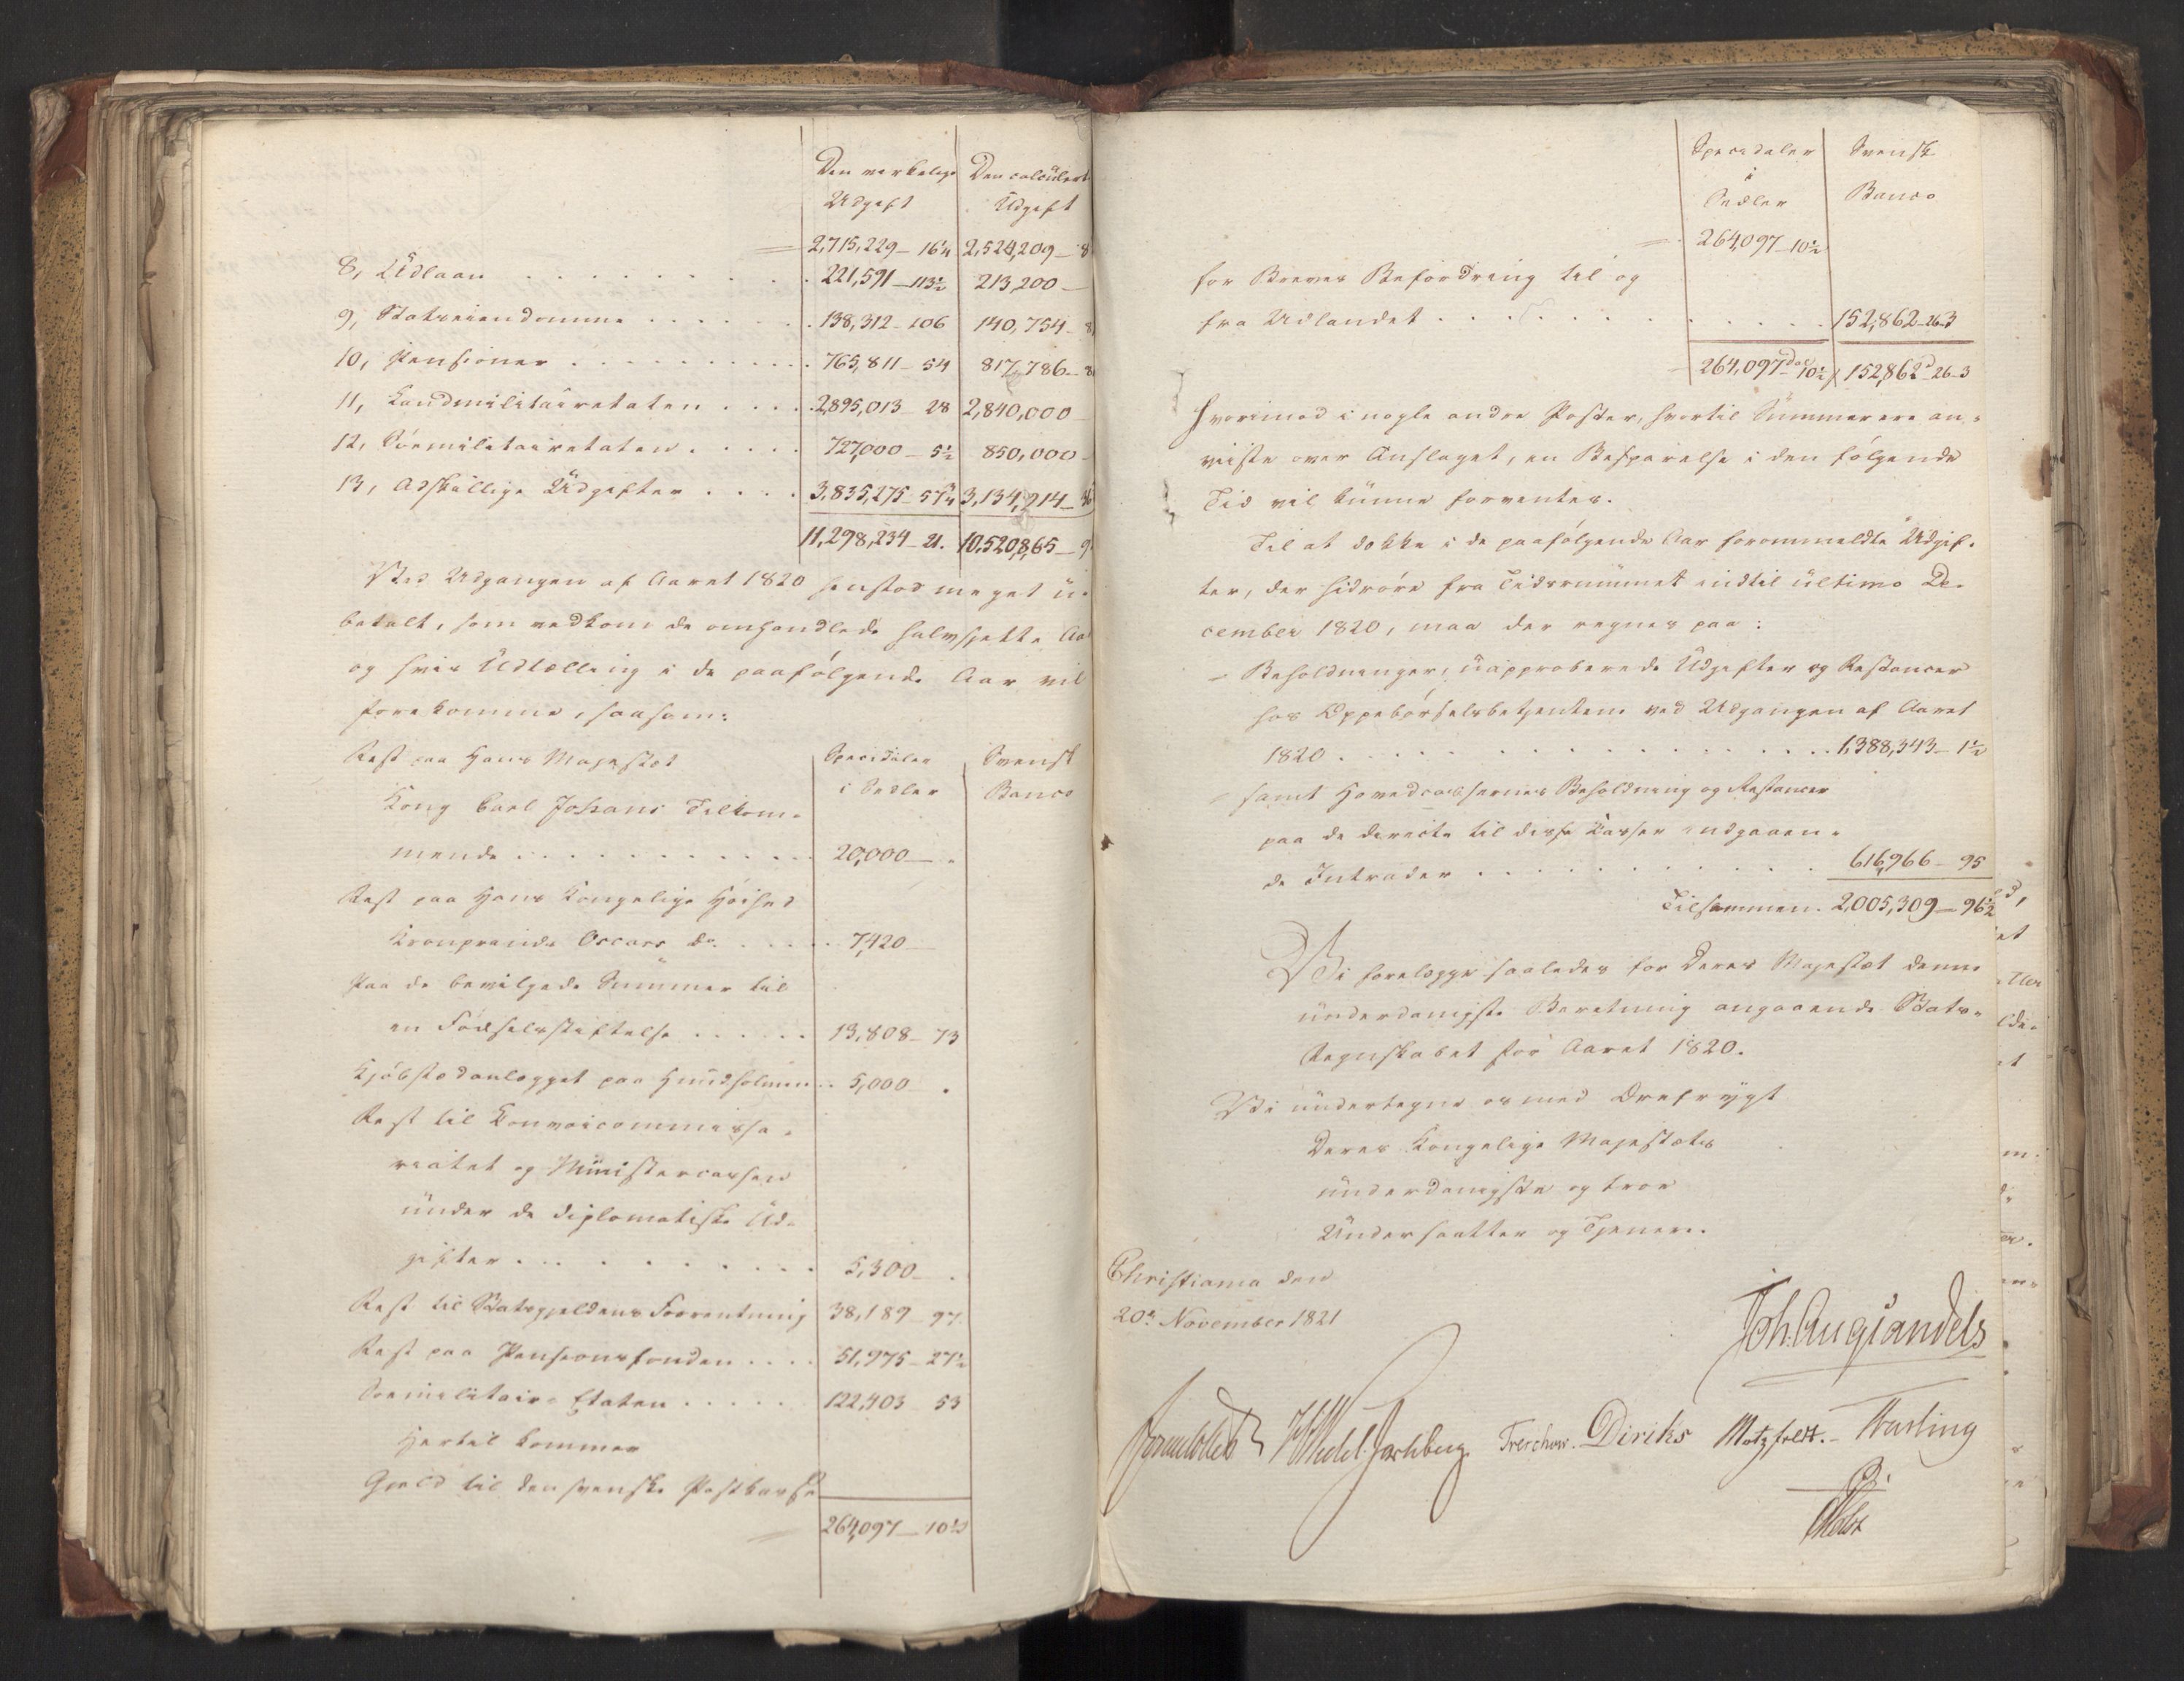 Den virkelige Den calculerte
Udgift Udgift
2,715,229 - 16¼ 2,524,209 - 8
8, Udlaan . . . . . . . . 221,591 - 113½ 213,200 -
9, Statseiendomme . . . . . . 138,312 - 106 140,754 - 8
10, Pensioner . . . . . . . . 765,811 - 54 817,786 - 8
11, Landmilitairetaten . . . . 2,895,013 - 28 2,840,000 -
12, Söemilitairetaten . . . . . 727,000 - 5½ 850,000 -
13, Adskillige Udgifter . . . . 3,835,275 - 57¾ 3,134,214 - 36
11,298,234 - 21. 10,520,865 - 9
Ved Udgangen af Aaret 1820 henstod meget u-
betalt, som vedkom de omhandlede halvsjette Aar
og hvis Udtælling i de paafølgende Aar vil
forekomme, saasom:
Rest paa Hans Majestæt Speciedaler Svensk
Kong Carl Johans Tilkom- i Sedler Banco
mende . . . . . . . . . . . 20,000 -
Rest paa Hans Kongelige Høihed
Kronprinds Oscars do. . . . . 7,420 -
Paa de bevilgede Summer til
en Fødselsstiftelse . . . . . 13,808 - 73
Kjøbstedanlægget paa Hundholmen . . 5,000 .
Rest til Convoicommissa-
riatet og Ministercassen
under de diplomatiske Ud-
gifter . . . . . . . . . . 5,300 - .
Rest til Statsgjeldens Forrentning 38,189 - 97
Rest paa Pensionsfonden . . . . 51,975 - 27½
Søemilitair-Etaten . . . . . 122,403 - 53
Hertil kommer
Gjeld til den svenske Postkasse
264,097 - 10½
Speciedaler Svensk
i
Sedler Banco
264,097 - 10½
for Breves Befordring til og
fra Udlandet . . . . . . . . . . . . 152,862 - 26 - 3
264,097 - 10½ 152,862 - 26 - 3
hvorimod i nogle andre Poster, hvortil Summer ere an-
viiste over Anslaget, en Besparelse i den følgende
Tid vil kunne forventes.
Til at dække i de paafølgende Aar forommeldte Udgif-
ter, der hidrøre fra Tidsrummet indtil ultimo De-
cember 1820, maa der regnes paa:
- Beholdninger, uapproberede Udgifter og Restancer
hos Oppebørselsbetjentene ved Udgangen af Aaret
1820 . . . . . . . . . . . . . . 1,388,343 - 1½
- samt Hovedcassernes Beholdning og Restancer
paa de directe til disse Casser indgaaen-
de Intrader . . . . . . . . . . . 616,966 - 95
Tilsammen. 2,005,309 - 96½
Vi forelægge saaledes for Deres Majestæt denne
underdanigste Beretning angaaende Stats-
Regnskabet for Aaret 1820.
Vi undertegne os med Ærefrygt
Deres Kongelige Majestæts
underdanigste og troe
Undersaatter og Tjenere.
Christiania den
20de November 1821
Joh. Aug Sandels
Sommerhielm H Wedel Jarlsberg. Treschow. Diriks Motzfeldt. - Fasting
Holst